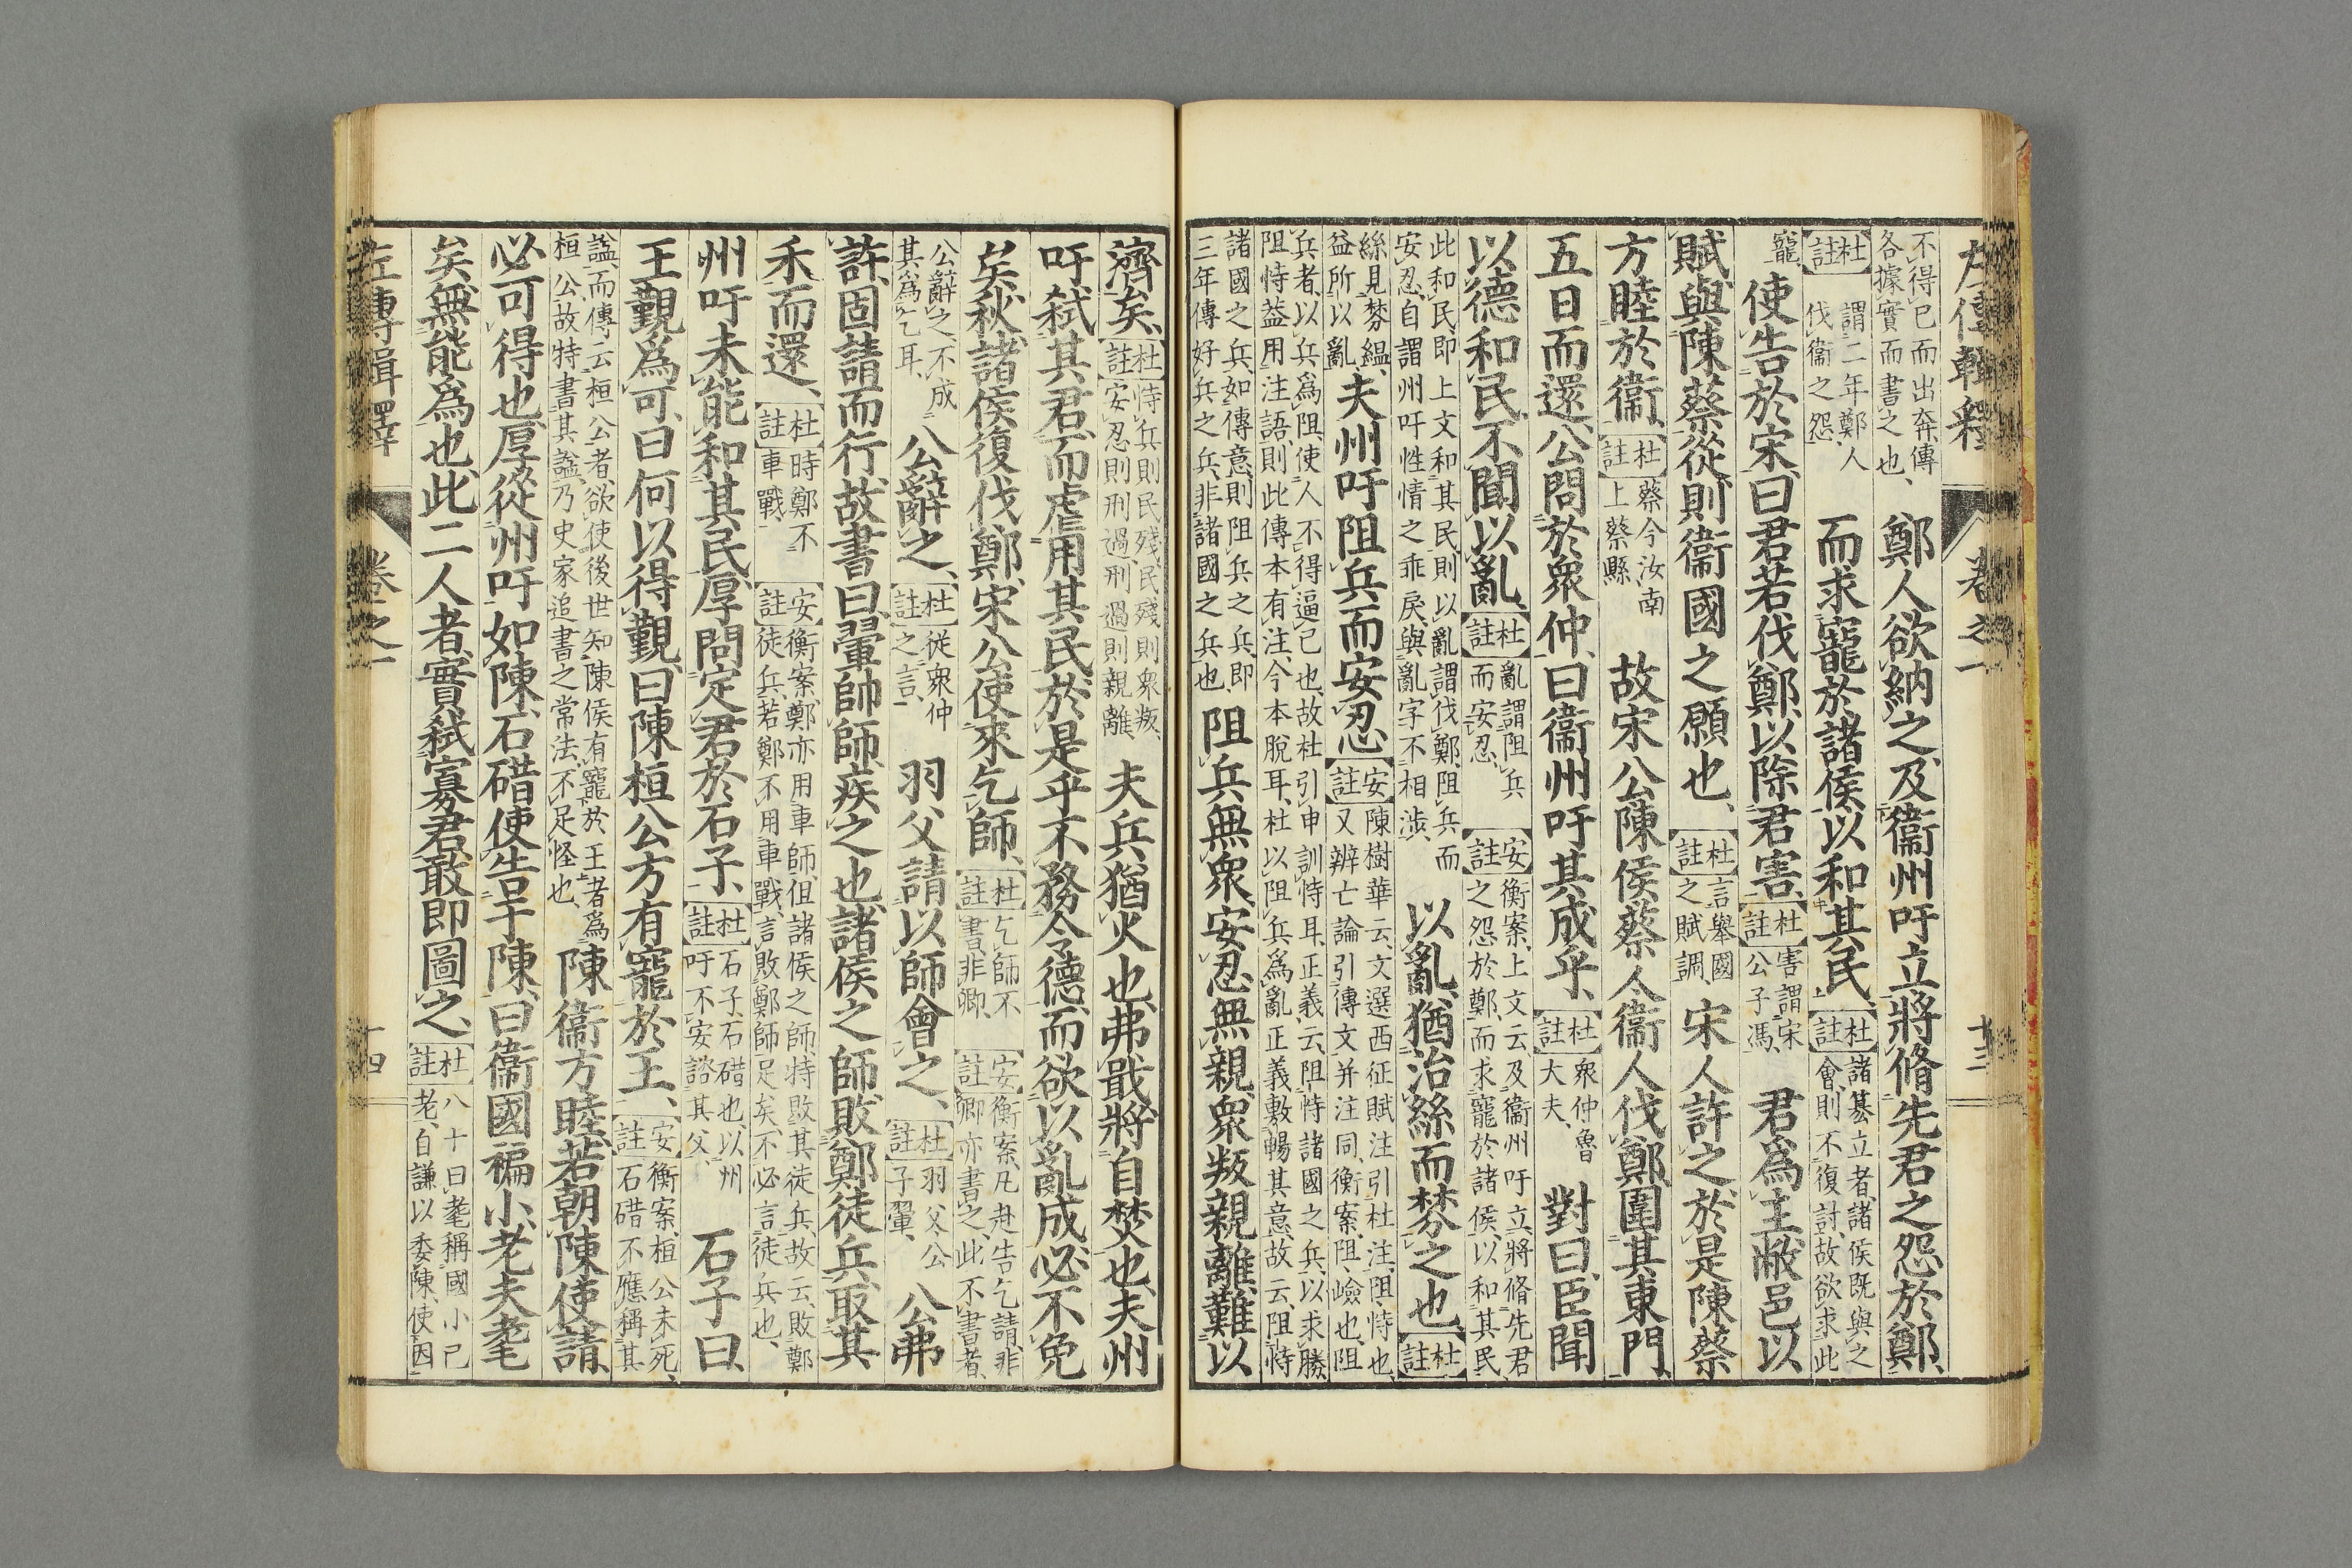 左傳輯釋 卷之一 十三
不得已而出奔傳各據實而書之也、鄭人欲納之、及衞州吁立將脩先君之怨於鄭、
杜註謂二年鄭人伐衞之怨、而求寵於諸侯以和其民、杜註諸簒立者、諸侯既與之會、則不復討、故欲求此
寵、使告於宋、曰君若伐鄭以除君害、杜註害謂宋公子馮、君爲主、敝邑以
賦與陳蔡從、則衞國之願也、杜註言舉國之賦調、宋人許之、於是陳蔡
方睦於衞、杜註蔡今汝南上蔡縣、故宋公陳侯蔡人衞人伐鄭、圍其東門、
五日而還、公問於衆仲、曰衞州吁其成乎、杜註衆仲魯大夫、對曰、臣聞
以德和民、不聞以亂、杜註亂謂阻兵而安忍、安註衡案、上文云、及衞州吁立將脩先君之怨於鄭、而求寵於諸侯、以和其民
此和民、即上文和其民、則以亂謂伐鄭、阻兵而安忍、自謂州吁性情之乖戾、與亂字不相涉、以亂、猶治絲而棼之也、杜註
絲見棼縕、益所以亂、夫州吁阻兵而安忍、安註陳樹華云、文選西征賦注引杜注、阻、恃也、又辨亡論引傳文并注同、衡案、阻、嶮也、阻
兵者、以兵爲阻、使人不得逼己也、故杜引申訓恃耳、正義云、阻恃諸國之兵、以求勝、阻恃益用注語、則此傳本有注、今本脫耳、杜以阻兵爲亂、正義敷暢其意、故云、阻恃
諸國之兵、如傳意、則阻兵之兵、即三年傳好兵之兵、非諸國之兵也、阻兵無衆、安忍無親、衆叛親離、難以
濟矣、杜註恃兵則民殘、民殘則衆叛、安忍則刑過、刑過則親離、夫兵猶火也、弗戢將自焚也、夫州
吁弒其君、而虐用其民、於是乎不務令德、而欲以亂成、必不免
矣、秋、諸侯復伐鄭、宋公使來乞師、杜註乞師不書、非卿、安註衡案、凡赴告乞請、非卿亦書之、此不書者、
公辭之、不成其爲乞耳、公辭之、杜註從衆仲之言、羽父請以師會之、杜註羽父公子翬、公弗
許、固請而行、故書曰、翬帥師、疾之也、諸侯之師、敗鄭徒兵、取其
禾而還、杜註時鄭不車戰、安註衡案、鄭亦用車師、但諸侯之師、特敗其徒兵、故云、敗鄭徒兵、若鄭不用車戰、言敗鄭師足矣、不必言徒兵也、
州吁未能和其民、厚問定君於石子、杜註石子、石碏也、以州吁不安、諮其父、石子曰、
王覲爲可、曰何以得覲、曰陳桓公方有寵於王、安註衡案、桓公未死、石碏不應稱其
諡、而傳云桓公者、欲使後世知陳侯有寵於王者爲桓公、故特書其諡、乃史家追書之常法、不足怪也、陳衞方睦、若朝陳使請、
必可得也、厚從州吁如陳、石碏使告于陳、曰衞國褊小、老夫耄
矣、無能爲也、此二人者、實弒寡君、敢即圖之、杜註八十曰耄、稱國小己老、自謙以委陳、使因
左傳輯釋 卷之一 十四